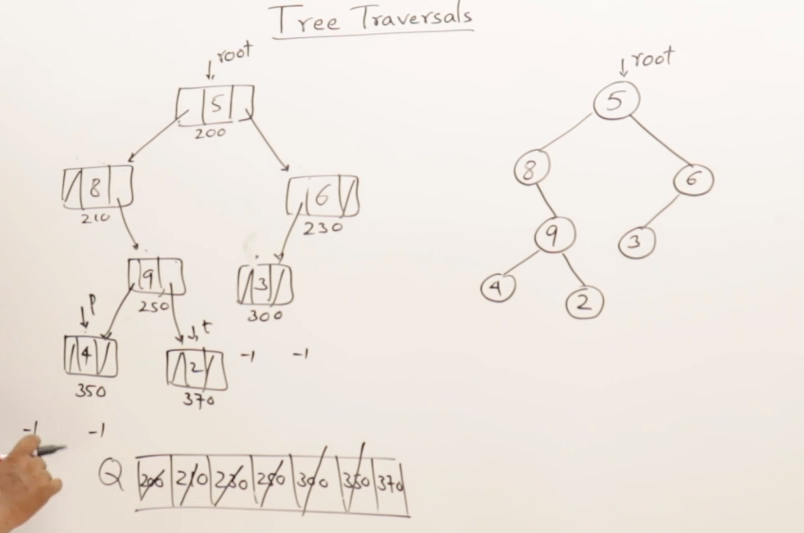 Tree Traversals
root
5
200
8
210
6
230
9
250
3
300
p
4
350
t
2
370
-1 -1
-1 -1
Q 200 210 230 250 300 350 370
root
5
8
6
9
3
4
2